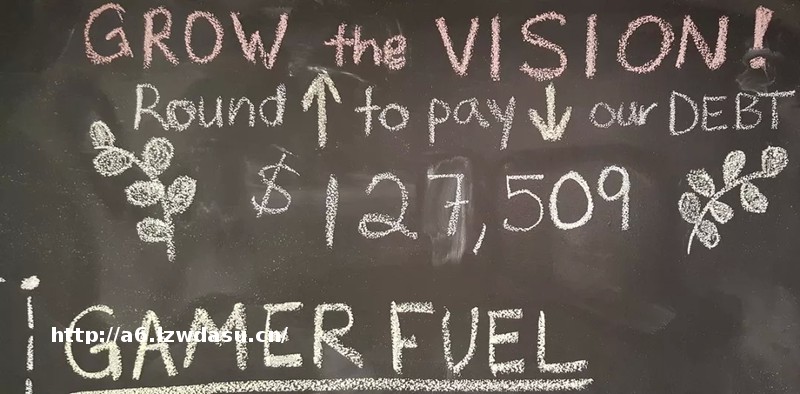 GROW the VISION!
Round ↑ to pay ↓ our DEBT
$127,509
GAMER FUEL
http://a6.lzwdasu.cn/